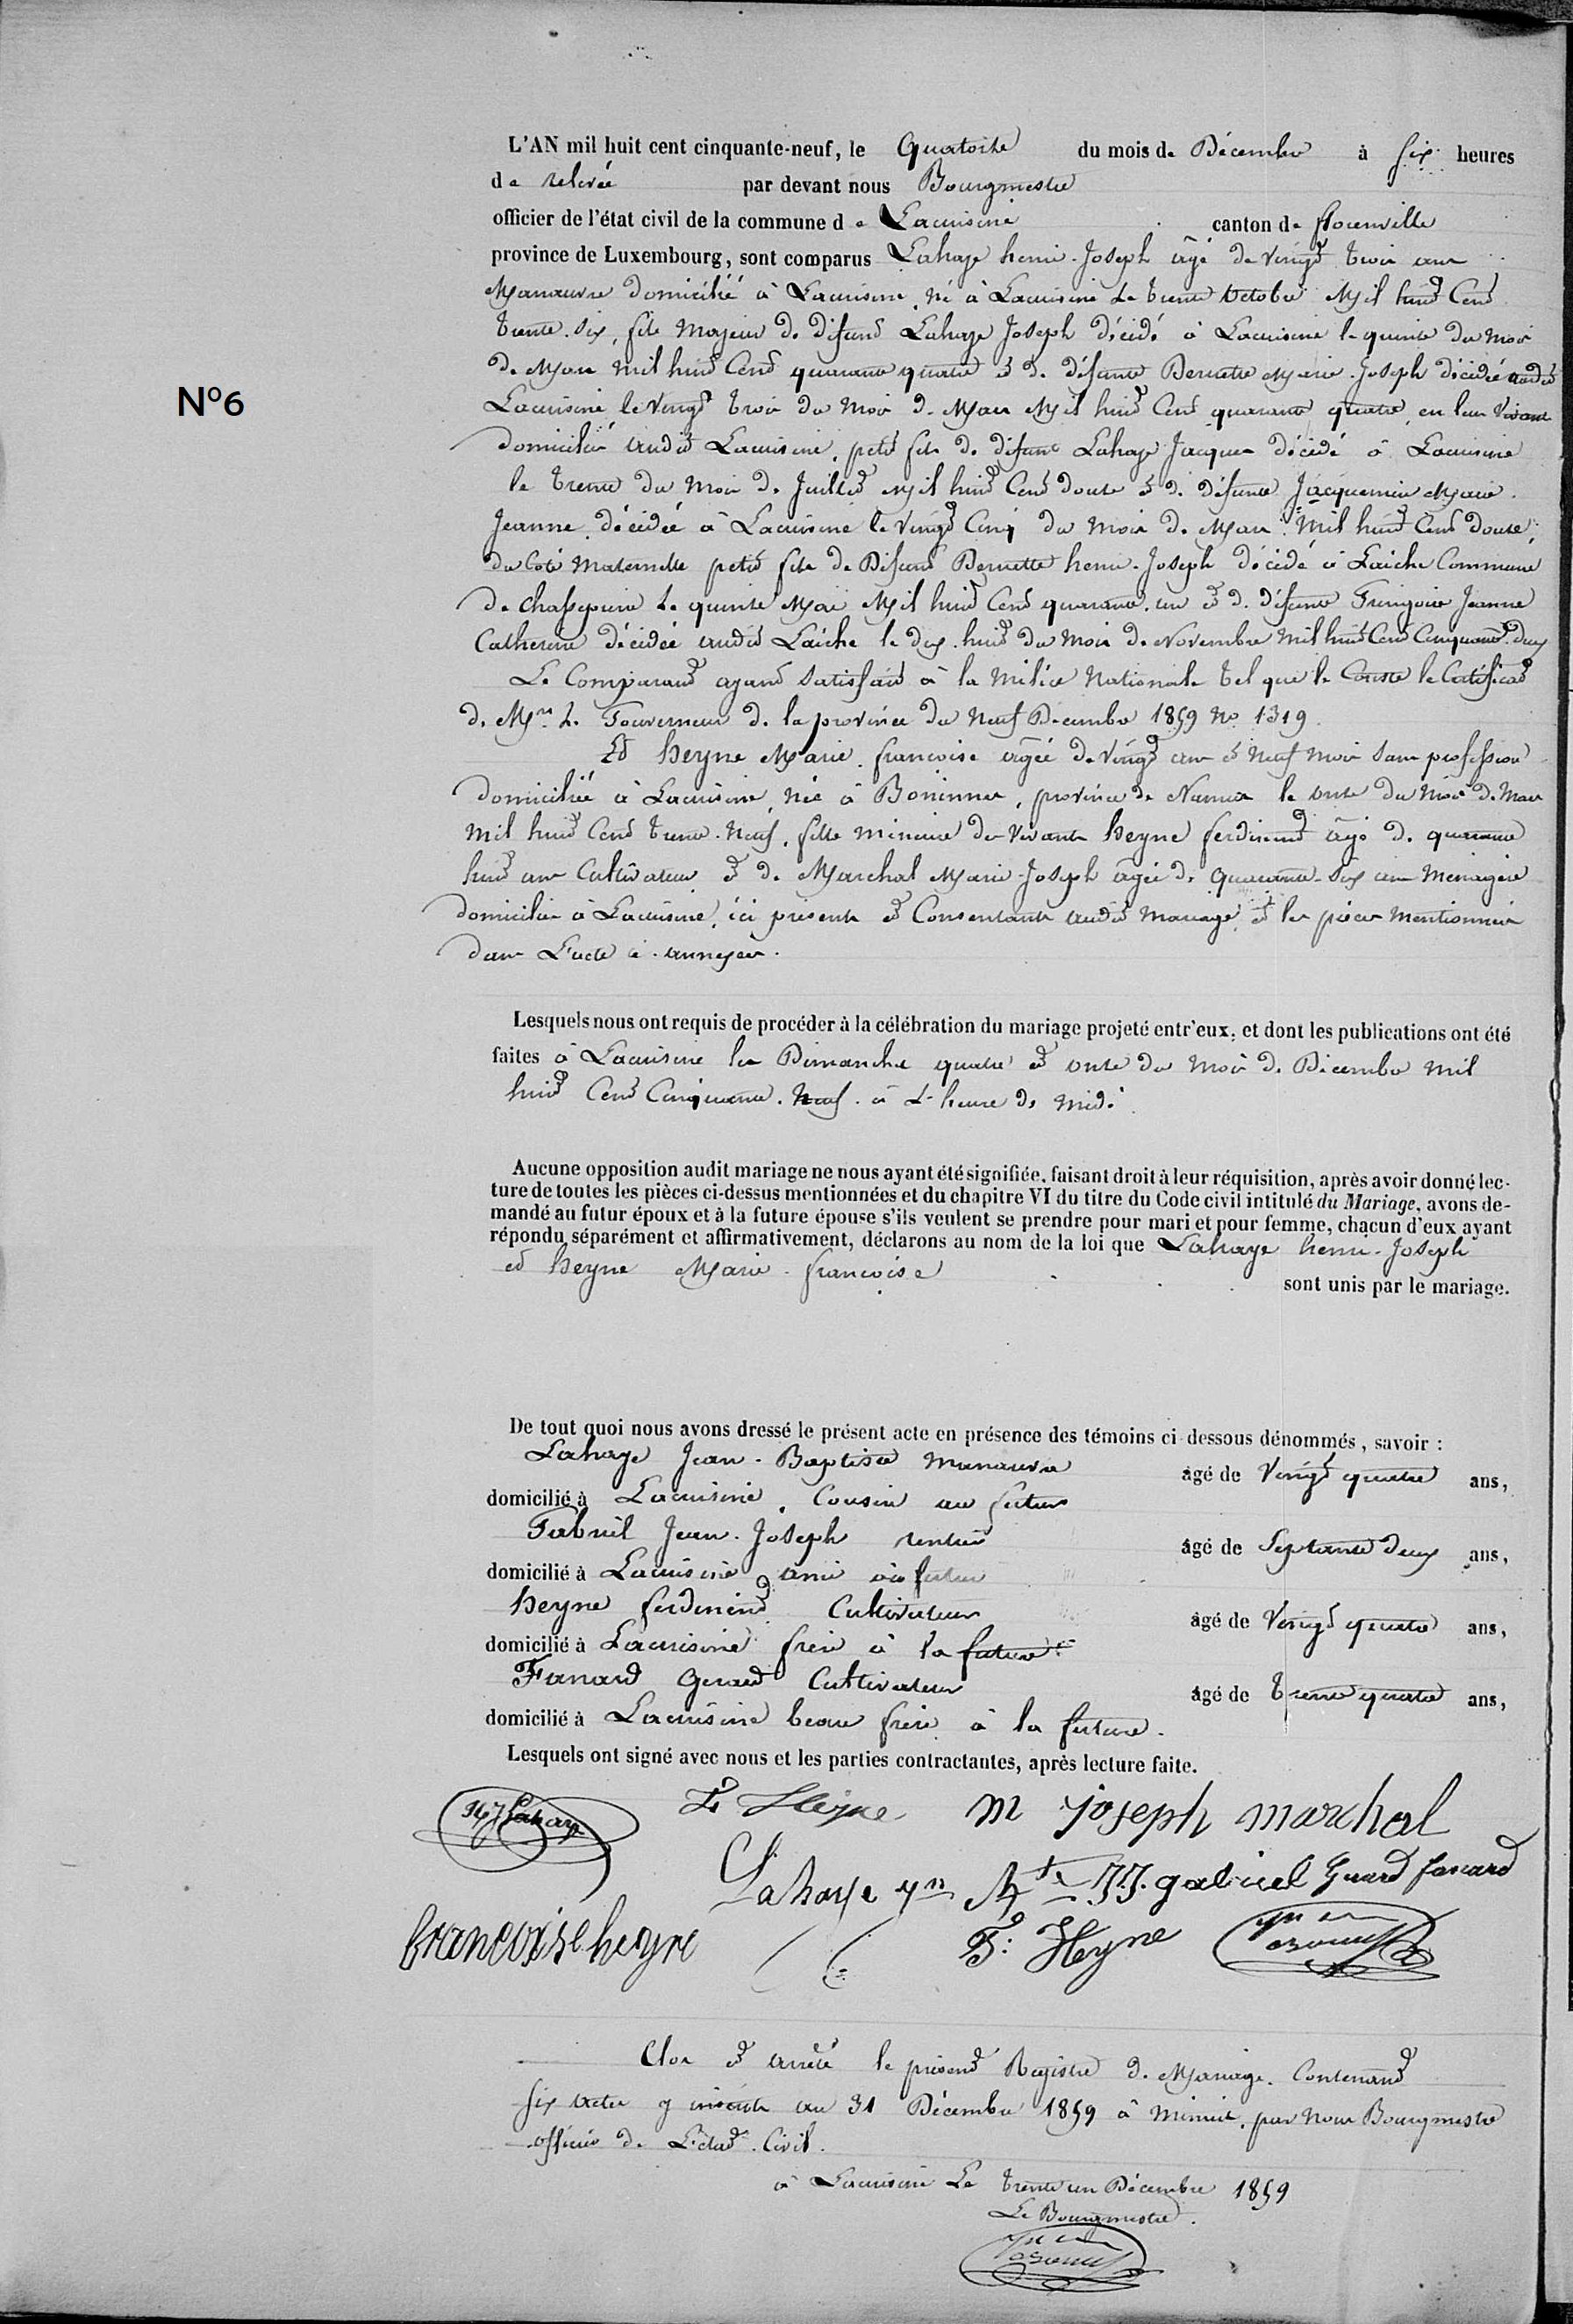 L'AN mil huit cent cinquante-neuf, le Quatorze du mois de Décembre à six heures
de relevée par devant nous Bourgmestre
officier de l'état civil de la commune de Lacuisine canton de florenville
province de Luxembourg, sont comparus Lahaye henri-Joseph âgé de vingt trois ans
Manœuvre domicilié à Lacuisine, né à Lacuisine le trente octobre Mil huit Cent
trente-six, fils Majeur de défunt Lahaye Joseph décédé à Lacuisine le quinze du mois
de Mars Mil huit Cent quarante quatre et de défunte Bernette Marie-Joseph décédée audit
Lacuisine le vingt trois du Mois de Mars Mil huit Cent quarante quatre, en leur vivant
domiciliés audit Lacuisine, petit fils de défunt Lahaye Jacques décédé à Lacuisine
le trente du Mois de Juillet Mil huit Cent douze et de défunte Jacquemin Marie-
Jeanne décédée à Lacuisine le vingt Cinq du Mois de Mars Mil huit Cent douze,
du Coté Maternelle petit fils de Défunt Bernette henri-Joseph décédé à Laiche Commune
de Chassepierre le quinze Mai Mil huit Cent quarante-un et de défunte Gringoire Jeanne
Catherine décédée audit Laiche le dix-huit du Mois de Novembre Mil huit Cent Cinquante-deux
Le Comparant ayant satisfait à la Milice Nationale tel que le Conste le Certificat
de Mr le Gouverneur de la province du Neuf Décembre 1859 No 1319.
Et heyne Marie-francoise âgée de vingt ans et Neuf mois sans profession
domiciliée à Lacuisine, née à Boninnes, province de Namur le onze du Mois de Mars
Mil huit Cent trente-Neuf, fille mineure de vivants heyne ferdinand âgé de quarante
huit ans Cultivateur et de Marchal Marie-Joseph âgée de quarante-six ans Ménagère
domiciliés à Lacuisine, ici présents et Consentants audit Mariage, et les pièces Mentionnées
dans L'acte ci-annexées.
Lesquels nous ont requis de procéder à la célébration du mariage projeté entr'eux, et dont les publications ont été
faites à Lacuisine les Dimanches quatre et onze du Mois de Décembre Mil
huit Cent Cinquante-Neuf à l'heure de Midi.
Aucune opposition audit mariage ne nous ayant été signifiée, faisant droit à leur réquisition, après avoir donné lec-
ture de toutes les pièces ci-dessus mentionnées et du chapitre VI du titre du Code civil intitulé du Mariage, avons de-
mandé au futur époux et à la future épouse s'ils veulent se prendre pour mari et pour femme, chacun d'eux ayant
répondu séparément et affirmativement, déclarons au nom de la loi que Lahaye henri-Joseph
et heyne Marie-francoise sont unis par le mariage.
De tout quoi nous avons dressé le présent acte en présence des témoins ci-dessous dénommés, savoir :
Lahaye Jean-Baptiste Manœuvre âgé de vingt quatre ans,
domicilié à Lacuisine, Cousin au futur
Gabriel Jean-Joseph rentier âgé de Septante deux ans,
domicilié à Lacuisine ami au futur
heyne ferdinand Cultivateur âgé de vingt quatre ans,
domicilié à Lacuisine frère à la future
Fanard Gerard Cultivateur âgé de trente quatre ans,
domicilié à Lacuisine beau frère à la future.
Lesquels ont signé avec nous et les parties contractantes, après lecture faite.
Lahaye F Heyne m joseph marchal
Lahaye jn Bte JJ. gabriel Gerard fanard
francoise heyne F: Heyne
Clos et arrêté le présent Registre de Mariage Contenant
six actes y inscrits au 31 Décembre 1859 à Minuit, par Nous Bourgmestre
officier de L'état-Civil.
à Lacuisine Le trente un Décembre 1859
Le Bourgmestre.
N°6